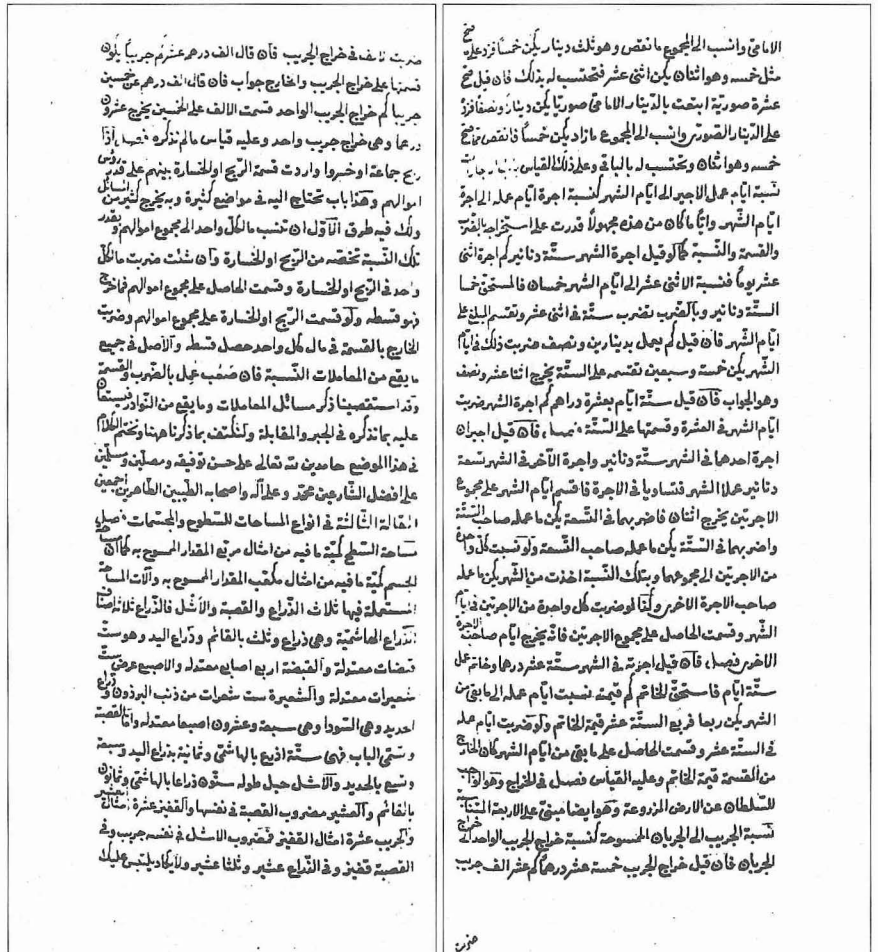 الامامى وانسب الى المجموع ما نقص وهو ثلث دينار يكن خمسا فزد على
مثل خمسه وهو اثنان يكن اثنى عشر فتحتسب له بذلك فان قيل
عشرة صورية ابتعت بالدينار الامامى صوريا يكن دينار ونصفا فزد
على الدينار الصورى وانسب الى المجموع ما زاد يكن خمسا فانقص
خمسه وهو اثنان وتحتسب له بالباقى وعلى ذلك القياس
نسبة ايام عمل الاجير الى ايام الشهر كنسبة اجرة ايام عمله الى اجرة
ايام الشهر وايا ما كان من هذه مجهولا قدرت على استخراجه بالضرب
والقسمة والنسبة كما لو قيل اجرة الشهر ستة دنانير كم اجرة اثنى
عشر يوما فنسبة الاثنى عشر الى ايام الشهر خمسان فالمستحق خمسا
الستة دنانير وبالضرب تضرب ستة فى اثنى عشر وتقسم المبلغ على
ايام الشهر فان قيل كم يعمل بدينارين ونصف ضربت ذلك فى ايام
الشهر يكن خمسة وسبعين تقسمه على الستة يخرج اثنا عشر ونصف
وهو الجواب فان قيل ستة ايام بعشرة دراهم كم اجرة الشهر ضربت
ايام الشهر فى العشرة وقسمتها على الستة فصل فان قيل اجيران
اجرة احدهما فى الشهر ستة دنانير واجرة الآخر فى الشهر تسعة
دنانير عملا الشهر فتساويا فى الاجرة فاقسم ايام الشهر على مجموع
الاجرتين يخرج اثنان فاضربهما فى التسعة يكن ما عمله صاحب الستة
واضربهما فى الستة يكن ما عمله صاحب التسعة ولو نسبت كل واحدة
من الاجرتين الى مجموعهما وبتلك النسبة اخذت من الشهر يكن ما عمله
صاحب الاجرة الاخرى وكذا لو ضربت كل واحدة من الاجرتين فى ايام
الشهر وقسمت الحاصل على مجموع الاجرتين فانه يخرج ايام صاحبة الاجرة
الاخرى فصل فان قيل اجرته فى الشهر ستة عشر درهما وخاتم عمل
ستة ايام فاستحق الخاتم كم قيمته نسبت ايام عمله الى ما بقى من
الشهر يكن ربعا فربع الستة عشر قيمة الخاتم ولو ضربت ايام عمله
فى الستة عشر وقسمت الحاصل على ما بقى من ايام الشهر كان الخارج
من القسمة قيمة الخاتم وعليه القياس فصل فى الخراج وهو الواجب
للسلطان عن الارض المزروعة وهو ايضا مبنى على الاربعة المتناسبة
نسبة الجريب الى الجربان الممسوحة كنسبة خراج الجريب الواحد الى خراج
الجربان فان قيل خراج الجريب خمسة عشر درهما كم عشر الف جريب
ضربت
ضربت فى خراج الجريب فان قال الف درهم عشركم جريبا يكون
قسمتها على خراج الجريب والخارج جواب فان قال الف درهم عن خمسين
جريبا كم خراج الجريب الواحد قسمت الالف على الخمسين يخرج عشرون
درهما وهى خراج جريب واحد وعليه قياس ما لم نذكره فصل اذا
ربح جماعة او خسروا واردت قسمة الربح او الخسارة بينهم على قدر رؤس
اموالهم وهذا باب تحتاج اليه فى مواضع كثيرة وبه يخرج كثير من المسائل
ولك فيه طرق الاول ان تنسب مال كل واحد الى مجموع اموالهم وبقدر
تلك النسبة تخصه من الربح او الخسارة وان شئت ضربت مال كل
واحد فى الربح او الخسارة وقسمت الحاصل على مجموع اموالهم فما خرج
فهو قسطه ولو قسمت الربح او الخسارة على مجموع اموالهم وضربت
الخارج بالقسمة فى مال كل واحد حصل قسطه والاصل فى جميع
ما يقع من المعاملات النسبة فان صعب عمل بالضرب والقسمة
وقد استقصينا ذكر مسائل المعاملات وما يقع من النوادر فيستعان
عليه بما نذكره فى الجبر والمقابلة ولنكتف بما ذكرنا ههنا ونختم الكلام
فى هذا الموضع حامدين لله تعالى على حسن توفيقه ومصلين ومسلمين
على افضل الشارعين محمد وعلى آله واصحابه الطيبين الطاهرين اجمعين
المقالة الثالثة فى انواع المساحات للسطوح والمجسمات فصل
مساحة السطح كمية ما فيه من امثال مربع المقدار الممسوح به كما ان مساحة
الجسم كمية ما فيه من امثال مكعب المقدار الممسوح به وآلات المساحة
المستعملة فيها ثلاث الذراع والقصبة والاشل فالذراع ثلاثة اصناف
الذراع الهاشمية وهى ذراع وثلث بالقائم وذراع اليد وهو ست
قبضات معتدلة والقبضة اربع اصابع معتدله والاصبع عرض ست
شعيرات معتدلة والشعيرة ست شعرات من ذنب البرذون وذراع
الحديد وهى السودا وهى سبعة وعشرون اصبعا معتدله واما القصبة
وتسمى الباب فهى ستة اذرع بالهاشمى وثمانية بذراع اليد وسبعة
وتسع بالحديد والاشل حبل طوله ستون ذراعا بالهاشمى وثمانون
بالقائم والعشير مضروب القصبة فى نفسها والقفيز عشرة امثال العشير
والجريب عشرة امثال القفيز فمضروب الاشل فى نفسه جريب وفى
القصبة قفيز وفى الذراع عشير وثلثا عشير ولا يكاد يلتبس عليك